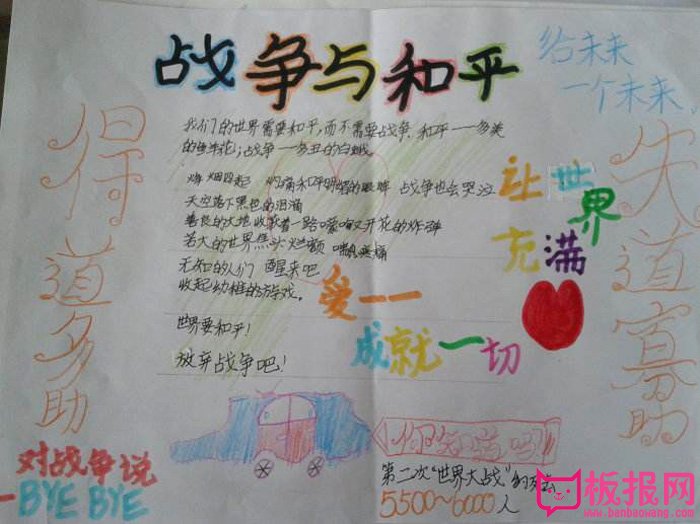 战争与和平
给未来
一个未来
得道多助
失道寡助
我们的世界需要和平,而不需要战争.和平——多美
的 花;战争——多丑的白
烟四起 和平 的眼 战争也会哭泣
天空落下黑色的泪滴
善良的大地收 着一路 又开花的炸弹
若大的世界焦头烂额
无知的人们 醒来吧
收起幼稚的游戏。
世界要和平!
放弃战争吧!
让世界
充满
爱——
成就一切
对战争说
-BYE BYE
你知道吗?
第二次“世界大战”
5500~6000人
板报网
www.banbaowang.com